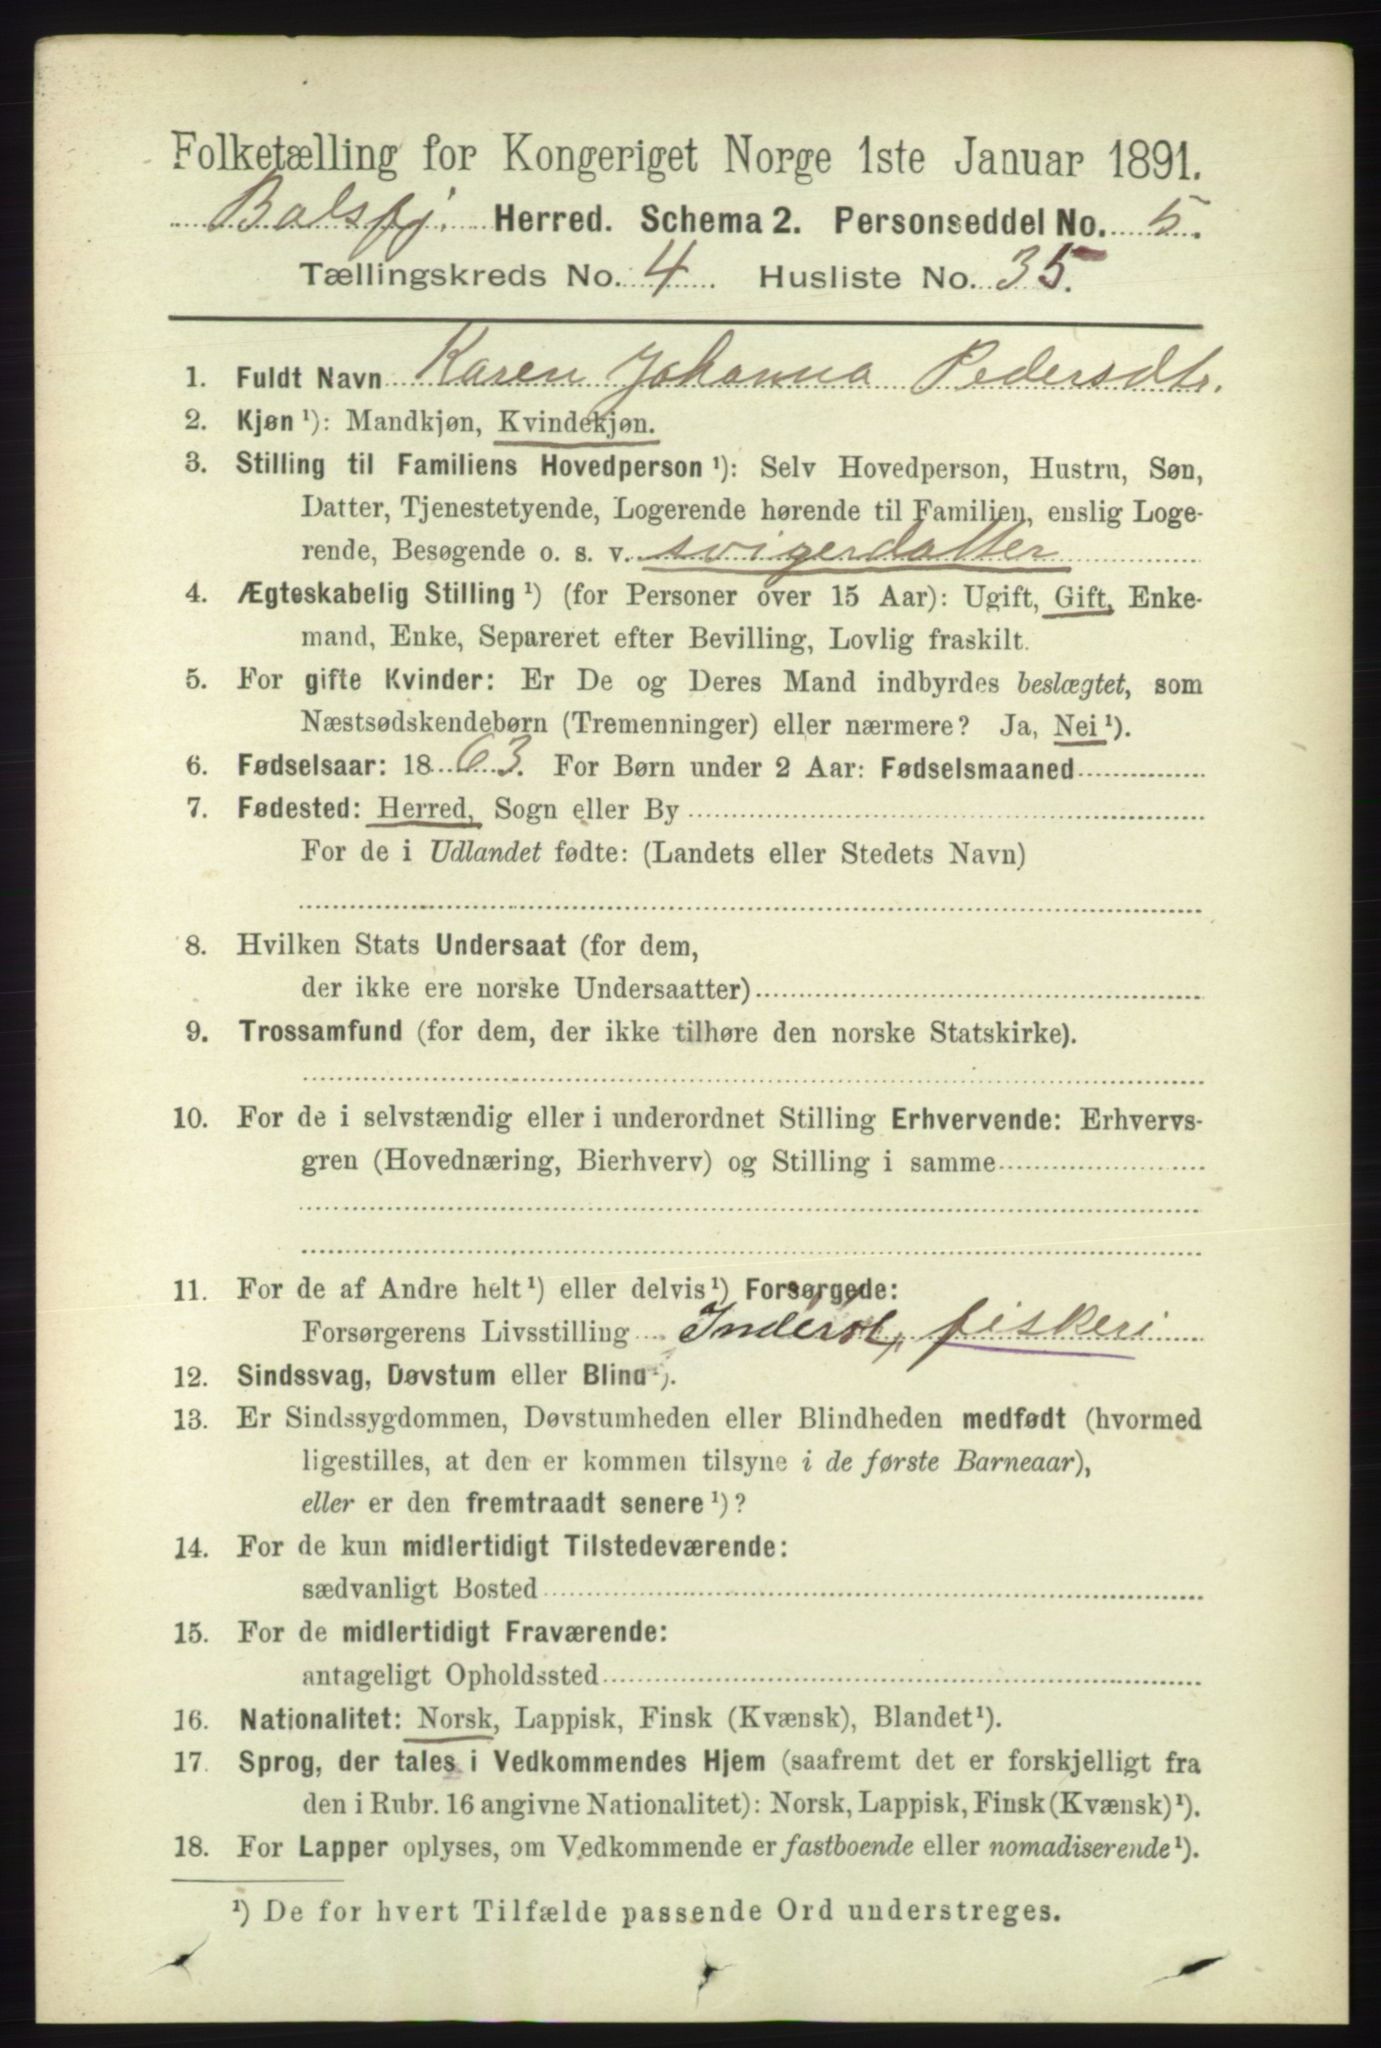 Folketælling for Kongeriget Norge 1ste Januar 1891.
Balsfj. Herred. Schema 2. Personseddel No. 5.
Tællingskreds No. 4. Husliste No. 35.
1. Fuldt Navn Karen Johanna Pedersdtr.
2. Kjøn ¹): Mandkjøn, Kvindekjøn.
3. Stilling til Familiens Hovedperson ¹): Selv Hovedperson, Hustru, Søn,
Datter, Tjenestetyende, Logerende hørende til Familien, enslig Loge-
rende, Besøgende o. s. v. svigerdatter
4. Ægteskabelig Stilling ¹) (for Personer over 15 Aar): Ugift, Gift, Enke-
mand, Enke, Separeret efter Bevilling, Lovlig fraskilt.
5. For gifte Kvinder: Er De og Deres Mand indbyrdes beslægtet, som
Næstsødskendebørn (Tremenninger) eller nærmere? Ja, Nei ¹).
6. Fødselsaar: 1863. For Børn under 2 Aar: Fødselsmaaned
7. Fødested: Herred, Sogn eller By
For de i Udlandet fødte: (Landets eller Stedets Navn)
8. Hvilken Stats Undersaat (for dem,
der ikke ere norske Undersaatter)
9. Trossamfund (for dem, der ikke tilhøre den norske Statskirke).
10. For de i selvstændig eller i underordnet Stilling Erhvervende: Erhvervs-
gren (Hovednæring, Bierhverv) og Stilling i samme
11. For de af Andre helt ¹) eller delvis ¹) Forsørgede:
Forsørgerens Livsstilling Inderst, fiskeri
12. Sindssvag, Døvstum eller Blind ¹).
13. Er Sindssygdommen, Døvstumheden eller Blindheden medfødt (hvormed
ligestilles, at den er kommen tilsyne i de første Barneaar),
eller er den fremtraadt senere ¹)?
14. For de kun midlertidigt Tilstedeværende:
sædvanligt Bosted
15. For de midlertidigt Fraværende:
antageligt Opholdssted
16. Nationalitet: Norsk, Lappisk, Finsk (Kvænsk), Blandet ¹).
17. Sprog, der tales i Vedkommendes Hjem (saafremt det er forskjelligt fra
den i Rubr. 16 angivne Nationalitet): Norsk, Lappisk, Finsk (Kvænsk) ¹).
18. For Lapper oplyses, om Vedkommende er fastboende eller nomadiserende ¹).
¹) De for hvert Tilfælde passende Ord understreges.